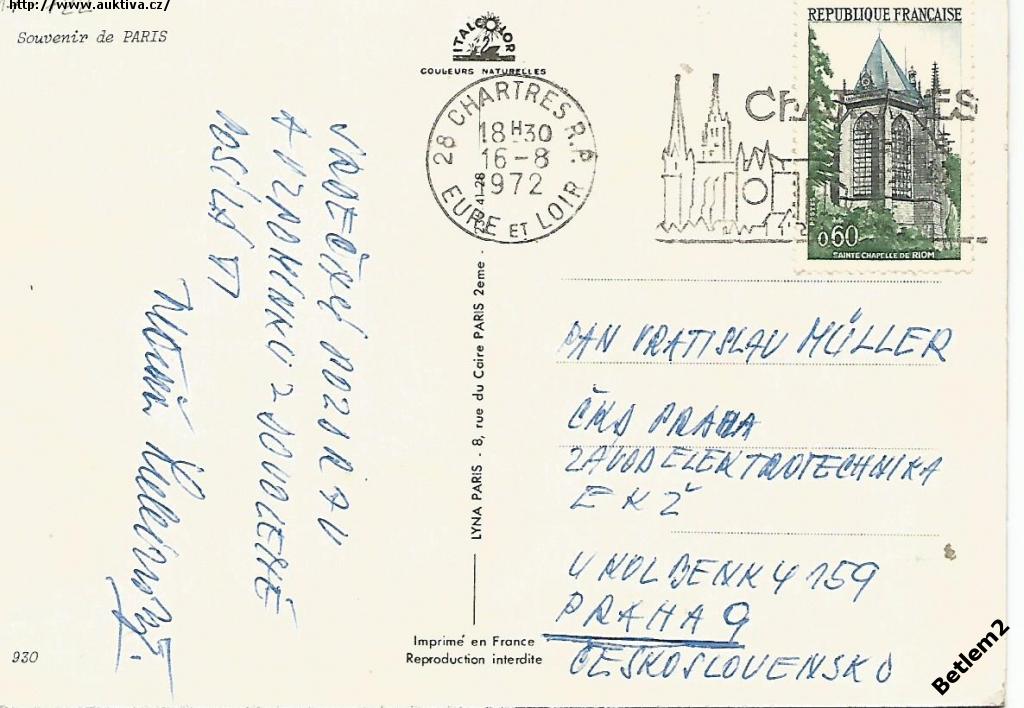 http://www.auktiva.cz/
Souvenir de PARIS
ITALCOLOR
COULEURS NATURELLES
28 CHARTRES R.P.
18H30
16-8
1972
EURE ET LOIR
CHARTRES
REPUBLIQUE FRANÇAISE
0,60
SAINTE CHAPELLE DE RIOM
SRDEČNÝ POZDRAV
A VZPOMÍNKU Z DOVOLENÉ
POSÍLÁ VÁM
LYNA PARIS - 8, rue du Caire PARIS 2eme -
PAN VRATISLAV MÜLLER
ČKD PRAHA
ZÁVOD ELEKTROTECHNIKA
E K Ž
U KOLBENKY 159
PRAHA 9
ČESKOSLOVENSKO
Imprimé en France
Reproduction interdite
930
Betlem2